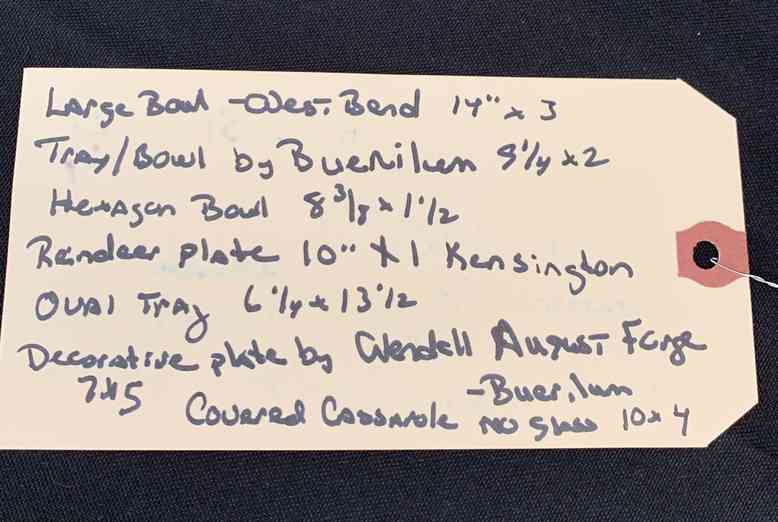 Large Bowl - West Bend 14" x 3
Tray/Bowl by Buerilum 9 1/4 x 2
Hexagon Bowl 8 3/8 x 1 1/2
Reindeer plate 10" x 1 Kensington
Oval Tray 6 1/4 x 13 1/2
Decorative plate by Wendell August Forge
7x5
- Buerilum
Covered Casserole No Glass 10x4